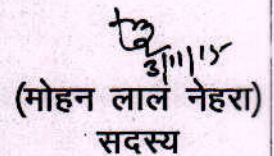 3/11/15
(मोहन लाल नेहरा)
सदस्य